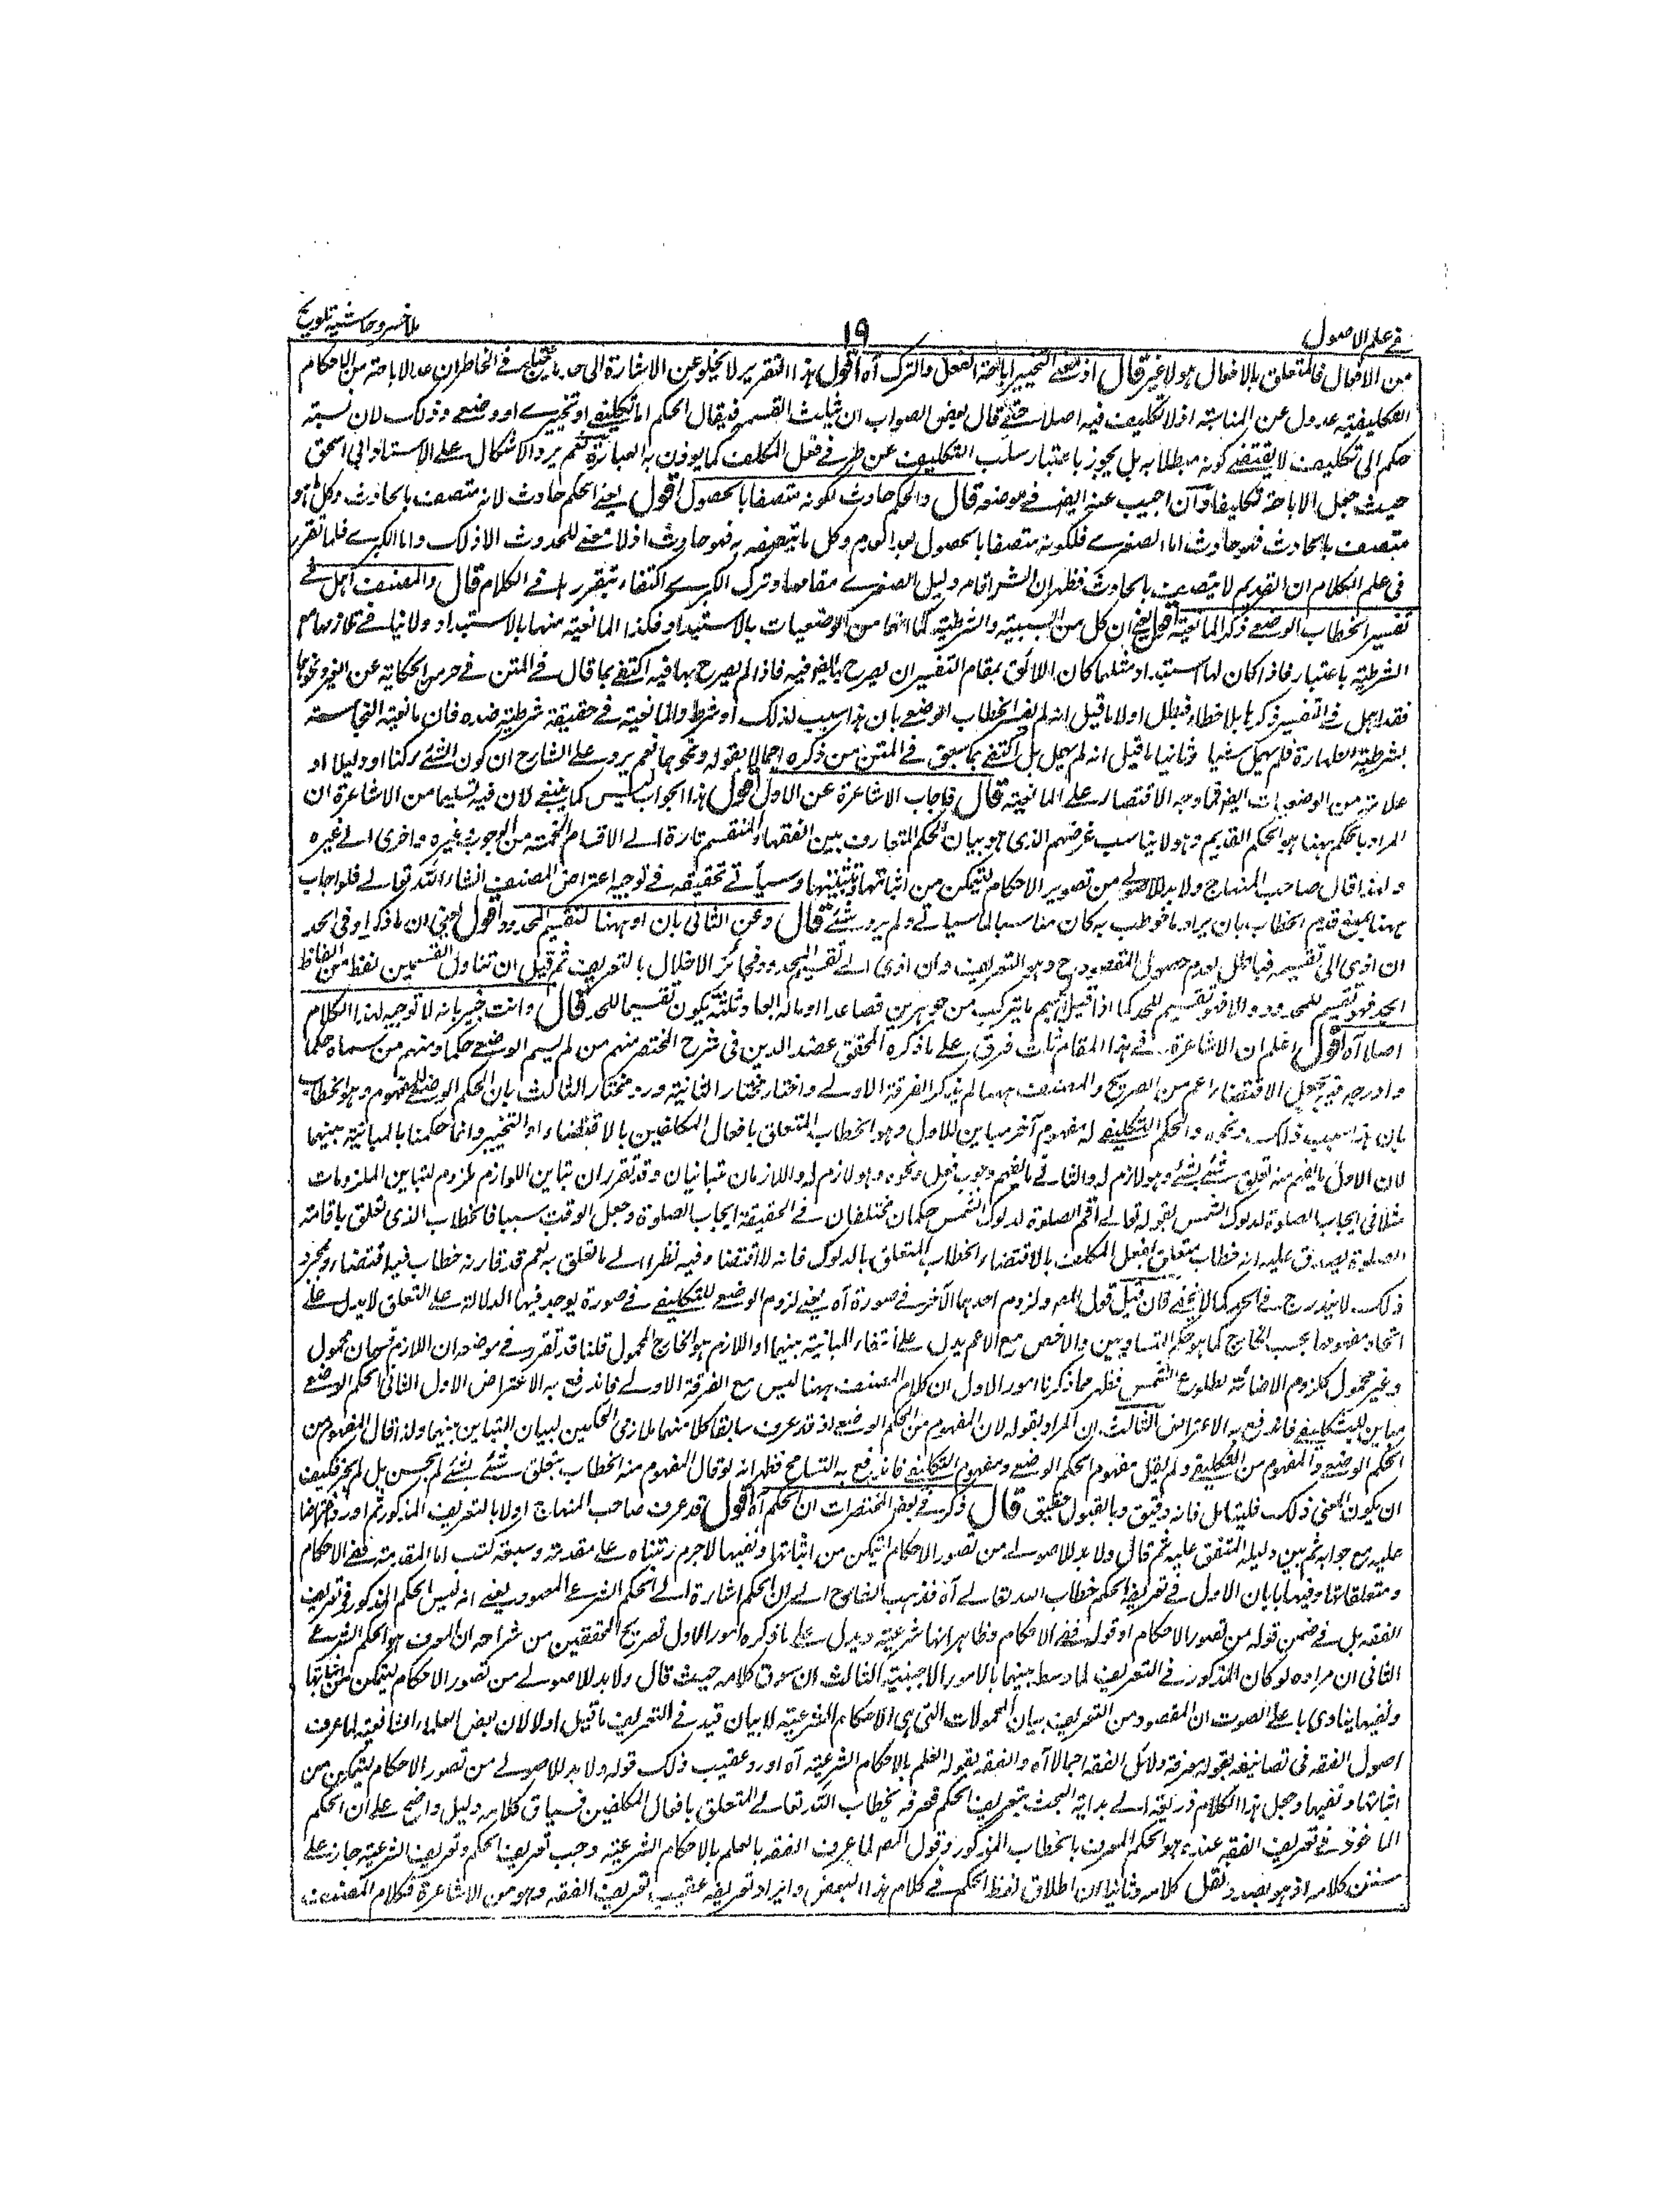 في علم الاصول
١٩
ملا خسرو حاشية تلويح
من الافعال فالمتعلق بالافعال هو لا غير قال اذ معنى التخيير اباحة الفعل والترك آه اقول هذا التقرير لا يخلو عن الاشارة الى ما يختلج في الخاطر ان عد الاباحة من الاحكام
التكليفية عدول عن المناسبة اذ لا تكليف فيه اصلا حتى قال بعض الصواب ان يثلث القسمة فيقال الحكم اما تكليفي او تخييري او وضعي وذلك لان نسبة
حكم الى تكليف لا يقتضي كونه مطلا به بل يجوز باعتبار سلب التكليف عن طرفي فعل المكلف كما يؤذن به العبارة نعم يرد الاشكال على الاستاذ ابي اسحق
حيث جعل الاباحة تكليفا وان اجيب عنه ايضا في موضعه قال والحكم حادث لكونه متصفا بالحصول اقول يعني الحكم حادث لانه متصف بالحادث وكل ما هو
متصف بالحادث فهو حادث اما الصغرى فلكونه متصفا بالحصول بعد العدم وكل ما يتصف به فهو حادث اذ لا معنى للحدوث الا ذلك واما الكبرى فلما تقرر
في علم الكلام ان القديم لا يتصف بالحادث فظهر ان الشر اقام دليل الصغرى مقامها وترك الكبرى اكتفاء بتقررها في الكلام قال والمصنف اهمل في
تفسير الخطاب الوضعي ذكر المانعية اقول يعني ان كل من السببية والشرطية كما انهما من الوضعيات بالاستبداد فكذا المانعية منها بالاستبداد ولا ينافيه تلازمها مع
الشرطية باعتبار فاذا كان لها استبداد مثلهما كان اللائق بمقام التفسير ان يصرح بها ايضا فيه فاذا لم يصرح بها فيه اكتفي بما قال في المتن في حرمن الحكاية عن الغير ونحوهما
فقد اهمل في التفسير ذكرها بلا خطاء فبطل اولا ما قيل انه لم يفسر الخطاب الوضعي بان هذا سبب لذلك او شرط والمانعية في حقيقة شرطية ضده فان مانعية النجاسة
بشرطية الطهارة فلم يهمل شيا وثانيا ما قيل انه لم يهمل بل اكتفى بما سبق في المتن من ذكره اجمالا بقوله ونحوهما نعم يرد على الشارح ان كون الشئ ركنا او دليلا او
علامة من الوضعيات ايضا فما وجه الاقتصار على المانعية قال فاجاب الاشاعرة عن الاول اقول هذا الجواب ليس كما ينبغي لان فيه تسليما من الاشاعرة ان
المراد بالحكم ههنا هو الحكم القديم وهو لا يناسب غرضهم الذي هو بيان الحكم المتعارف بين الفقهاء المنقسم تارة الى الاقسام الخمسة من الوجوب وغيره واخرى الى غيره
ولهذا قال صاحب المنهاج ولا بد للاصولي من تصوير الاحكام ليتمكن من اثباتها ونفيها وسيأتي تحقيقه في توجيه اعتراض المصنف انشاء الله تعالى فلو اجاب
ههنا بمنع قدم الخطاب بان يراد ما خوطب به كان مناسبا لما سياتي ولم يرد شئ قال وعن الثاني بان او ههنا لتقسيم المحدود اقول يعني ان ما ذكر او في الحد
ان ادى الى تقسيمه فباطل لعدم حصول المقصود ح وهو التعريف وان ادى الى تقسيم المحدود فجائز الاخلال بالتعريف ثم قيل ان تناول القسمين لفظ من الفاظ
الحد فهو تقسيم للمحدود والا فهو تقسيم للحد كما اذا قيل الجسم ما يتركب من جوهرين فصاعدا او ماله ابعاد ثلثة يكون تقسيما للحد قال وانت خبير بانه لا توجيه لهذا الكلام
اصلا آه اقول اعلم ان الاشاعرة في هذا المقام ثلث فرق على ما ذكره المحقق عضد الدين في شرح المختصر منهم من لم يسم الوضعي حكما ومنهم من سماه حكما
وادرجه فيه بجعل الاقتضاء اعم من الصريح والمصنف ههنا لم يذكر الفرقة الاولى واختار مختار الثانية ورد مختار الثالث بان الحكم الوضعي له مفهوم وهو الخطاب
بان هذا سبب ذلك ونحوه والحكم التكليفي له مفهوم آخر مباين للاول وهو الخطاب المتعلق بافعال المكلفين بالاقتضاء او التخيير وانما حكمنا بالمباينة بينهما
لان الاول ما يفهم منه تعلق شئ بشئ وهو لازم له والثاني ما يفهم وجوب فعل ونحوه وهو لازم له واللازمان متباينان وقد تقرر ان تباين اللوازم ملزوم لتباين الملزومات
مثلا في ايجاب الصلوة لدلوك الشمس بقوله تعالى اقم الصلوة لدلوك الشمس حكمان مختلفان في الحقيقة ايجاب الصلوة وجعل الوقت سببا فالخطاب الذي تعلق باقامة
الصلوة يصدق عليه انه خطاب متعلق بفعل المكلف بالاقتضاء والخطاب المتعلق بالدلوك فانه لا اقتضاء وفيه نظرا الى ما تعلق به نعم قد قارنه خطاب فيه اقتضاء ومجرد
ذلك لا يندرج في الحد كما لا يخفى فان قيل قول المصه ولزوم احدهما الآخر في صورة آه يعني لزوم الوضعي للتكليفي في صورة يوجد فيها الدلالة على التعلق لا يدل على
اتحاد مفهومهما بحسب الخارج كما هو حكم المتساويين والاخص مع الاعم يدل على انتفاء المباينة بينهما او اللازم هو الخارج المحمول قلنا قد تقرر في موضعه ان اللازم قسمان محمول
وغير محمول كلزوم الاضائة لطلوع الشمس فظهر مما ذكرنا امور الاول ان كلام المصنف ههنا ليس مع الفرقة الاولى فاندفع به الاعتراض الاول الثاني الحكم الوضعي
مباين للتكليفي فاندفع به الاعتراض الثالث ان المراد بقوله لان المفهوم من الحكم الوضعي اذ قد عرف سابقا كلا منهما ملازمى الحكمين لبيان التباين بينهما ولذا قال المفهوم من
الحكم الوضعي والمفهوم من التكليفي ولم يقل مفهوم الحكم الوضعي ومفهوم التكليفي فاندفع به التسامح فظهر انه لو قال المفهوم منه الخطاب بتعلق شئ بشئ لم يحسن بل لم يجز فكيف
ان يكون المعنى ذلك فليتامل فانه دقيق وبالقبول حقيق قال ذكر في بعض المختصرات ان الحكم آه اقول قد عرف صاحب المنهاج اولا بالتعريف المذكور ثم اورد اعتراضا
عليه مع جوابه ثم بين دليله المتفق عليه ثم قال ولا بد للاصولي من تصور الاحكام ليتمكن من اثباتها ونفيها لاجرم رتبناه على مقدمة وسبعة كتب اما المقدمة ففي الاحكام
ومتعلقاتها وفيها بابان الاول في تعريف الحكم خطاب الله تعالى آه فذهب الشارح الى ان الحكم اشارة الى الحكم الشرعي المعهود يعني انه ليس الحكم المذكور في تعريف
الفقه بل في ضمن قوله من تصور الاحكام او قوله ففي الاحكام وظاهر انها شرعية ويدل على ما ذكره امور الاول تصريح المحققين من شراحه ان المعرف هو الحكم الشرعي
الثاني ان مراده لو كان المذكور في التعريف لما وسط بينهما بالامور الاجنبية الثالث ان سوق كلامه حيث قال ولا بد للاصولي من تصور الاحكام ليتمكن من اثباتها
ونفيها ينادى باعلى الصوت ان المقصود من التعريف بيان المحمولات التي هي الاحكام الشرعية لا بيان قيد في التعريف ما قيل اولا لان بعض العلماء الشافعية لما عرف
اصول الفقه في تصانيفه بقوله معرفة دلائل الفقه اجمالا آه والفقه بقوله العلم بالاحكام الشرعية آه اورد عقيب ذلك قوله ولا بد للاصولي من تصور الاحكام ليتمكن من
اثباتها ونفيها وجعل هذا الكلام ذريعة الى بداية البحث بتعريف الحكم فعرفه بخطاب الله تعالى المتعلق بافعال المكلفين فسياق كلامه دليل واضح على ان الحكم
الماخوذ في تعريف الفقه عنده هو الحكم المعرف بالخطاب المذكور وقول المصه لما عرف الفقه بالعلم بالاحكام الشرعية وجب تعريف الحكم وتعريف الشرعية جاز على
سنن كلامه اذ هو بصدد نقل كلامه وثانيا ان اطلاق لفظ الحكم في كلام هذا البعض وايراد تعريفه عقيب تعريف الفقه وهو من الاشاعرة فكلام المصنف